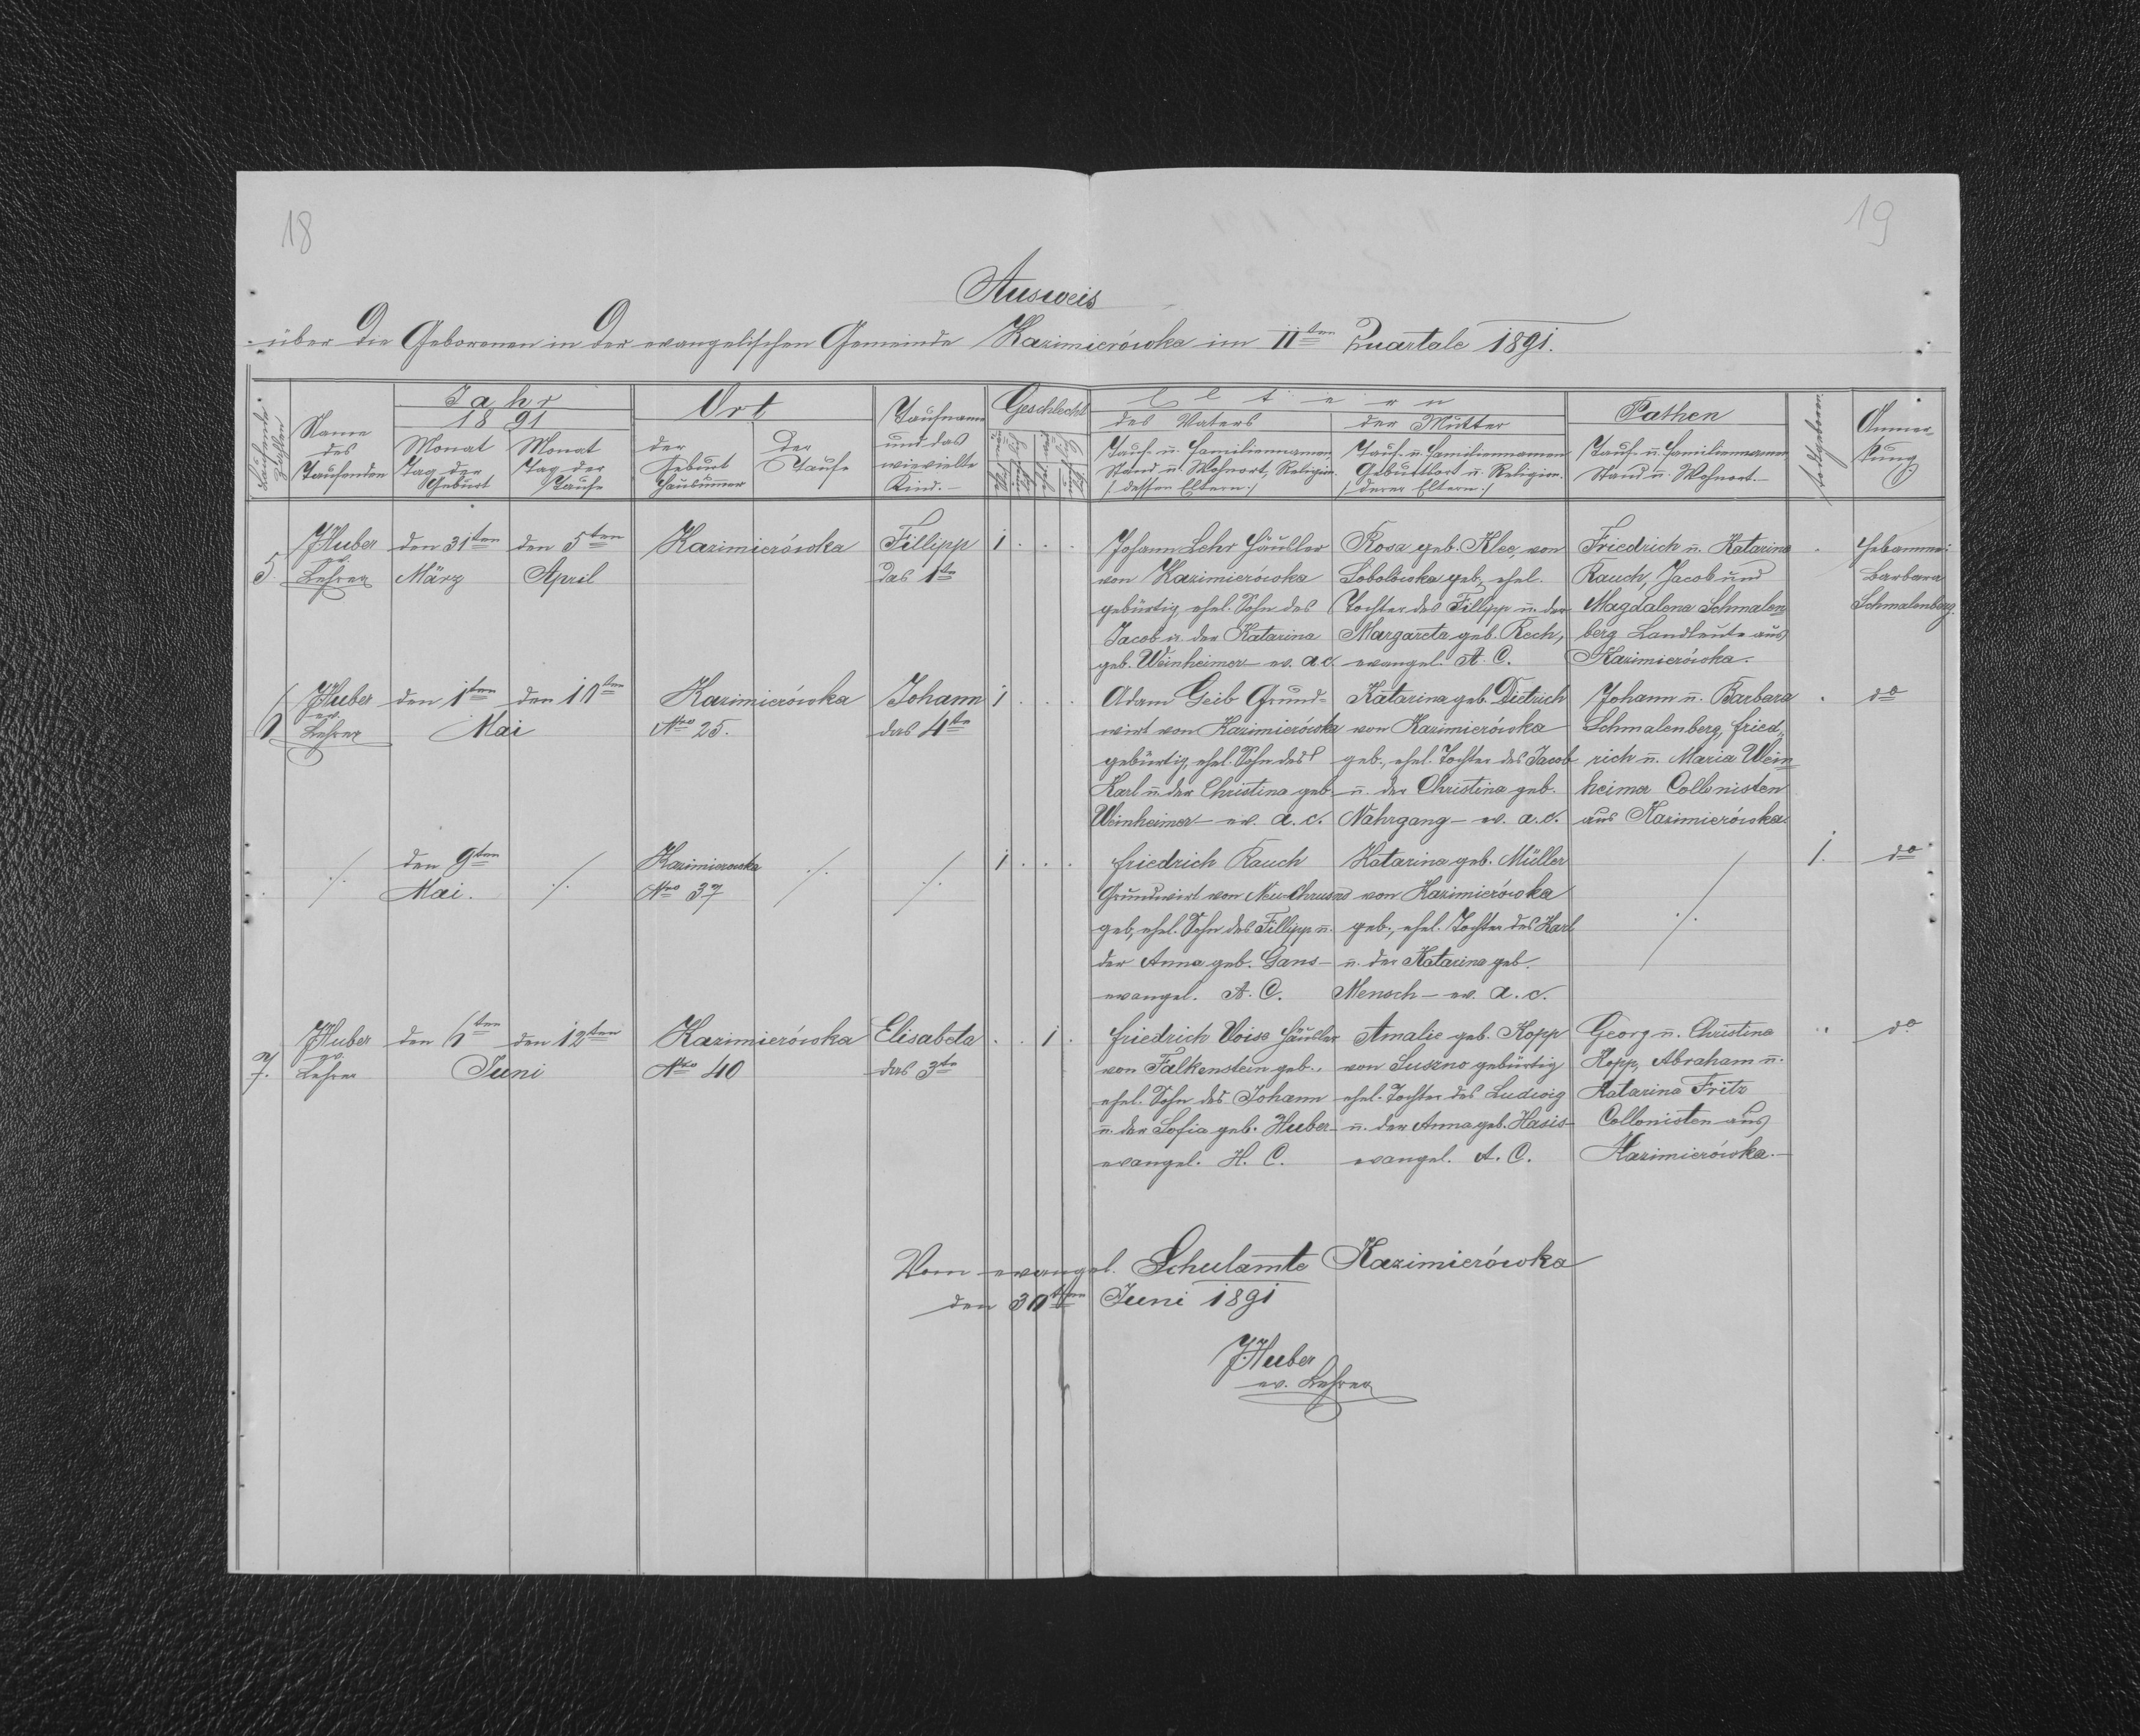 18
19
Ausweis
über die Geborenen in der evangelischen Gemeinde Kazimierówka im II ten Quartale 1891.
Laufende Zahlen
Name des Taufenden
Jahr
1891
Monat Tag der Geburt
Monat Tag der Taufe
Ort
der Geburt Hausnummer
der Taufe
Taufname und das wievielte Kind.-
Geschlecht
Eltern
des Vaters
Tauf- u. Familiennamen Stand u. Wohnort, Religion.
/:dessen Eltern:/
der Mutter
Tauf- u. Familiennamen Geburtsort u. Religion.
/:deren Eltern:/
Pathen
Tauf- u. Familiennamen Stand u. Wohnort.-
todtgeboren
Anmerkung
5. JHuber ev. Lehrer
den 31ten März
den 5ten April
Kazimierówka
Fillipp
das 1te
1 . . .
Johann Lehr Häusler
von Kazimierówka
gebürtig, ehel. Sohn des
Jacob u. der Katarina
geb. Weinheimer ev. a. c.
Rosa geb. Klee, von
Sobolówka geb., ehel.
Tochter des Fillipp u. der
Margareta geb. Rech,
evangel. A. C.
Friedrich u. Katarina
Rauch, Jacob und
Magdalena Schmalen
berg Landleute aus
Kazimierówka.
Hebamme:
Barbara
Schmalenberg.
6 JHuber ev. Lehrer
den 1ten den 10ten
Mai
Kazimierówka
Nro 25.
Johann
das 4te
1 . . .
Adam Geib Grund-
wirt von Kazimierówka
gebürtig, ehel. Sohn des
Karl u. der Christina geb.
Weinheimer - ev. a. c.
Katarina geb. Dietrich
von Kazimierówka
geb., ehel. Tochter des Jacob
u. der Christina geb.
Nahrgang - ev. a. c.
Johann u. Barbara
Schmalenberg, Fried-
rich u. Maria Wein
heimer Collonisten
aus Kazimierówka.
do
./.
den 9ten
Mai.
./.
Kazimierowka
Nro 37
./.
./.
1 . . .
Friedrich Rauch
Grundwirt von Neu-Chrusno
geb., ehel. Sohn des Fillipp u.
der Anna geb. Gans -
evangel. A. C.
Katarina geb. Müller
von Kazimierówka
geb., ehel. Tochter des Karl
u. der Katarina geb.
Mensch - ev. a. c.
./.
1.
do
7. JHuber ev. Lehrer
den 6ten den 12ten
Juni
Kazimierówka
Nro 40
Elisabeta
das 3te
. . 1 .
Friedrich Voise Häusler
von Falkenstein geb.,
ehel. Sohn des Johann
u. der Sofia geb. Huber -
evangel. H. C.
Amalie geb. Kopp
von Suszno gebürtig
ehel. Tochter des Ludwig
u. der Anna geb. Hasis -
evangel. A. C.
Georg u. Christina
Kopp, Abraham u.
Katarina Fritz
Collonisten aus
Kazimierówka.-
do
Vom evangel. Schulamte Kazimierówka
den 30ten Juni 1891
JHuber
ev. Lehrer